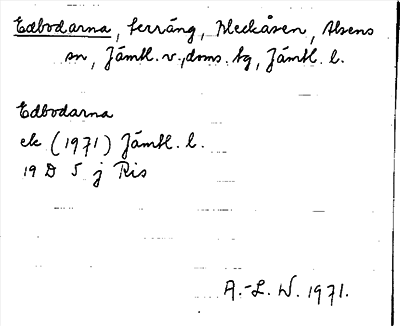 Edbodarna, terräng, Kleckåsen, Alsens
sn, Jämtl. v., doms. tg, Jämtl. l.
Edbodarna
ek (1971) Jämtl. l.
19 D 5 j Ris
A.-L. W. 1971.